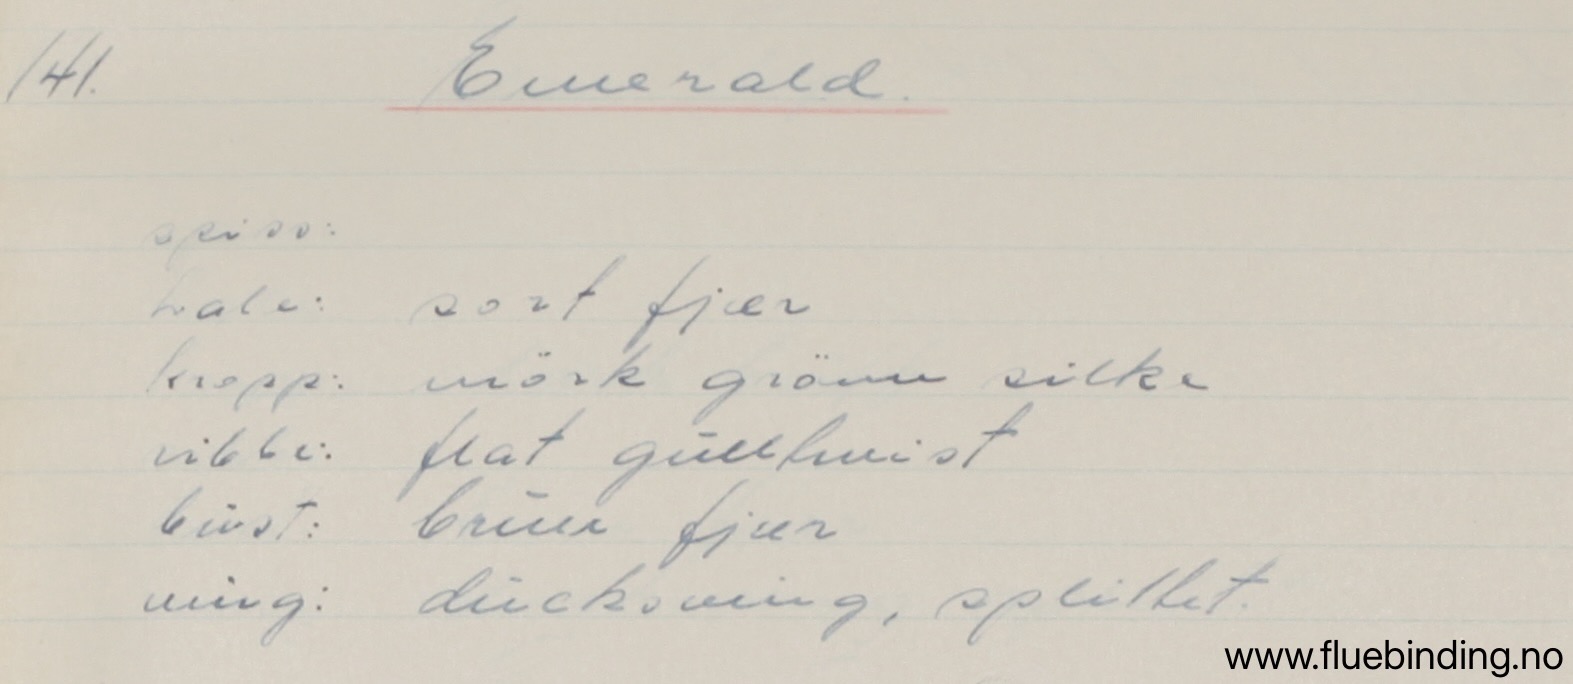 141. Emerald.
spiss:
hale: sort fjær
kropp: mörk grönn silke
ribbe: flat gulltwist
bust: brun fjær
wing: duckswing, splittet.
www.fluebinding.no